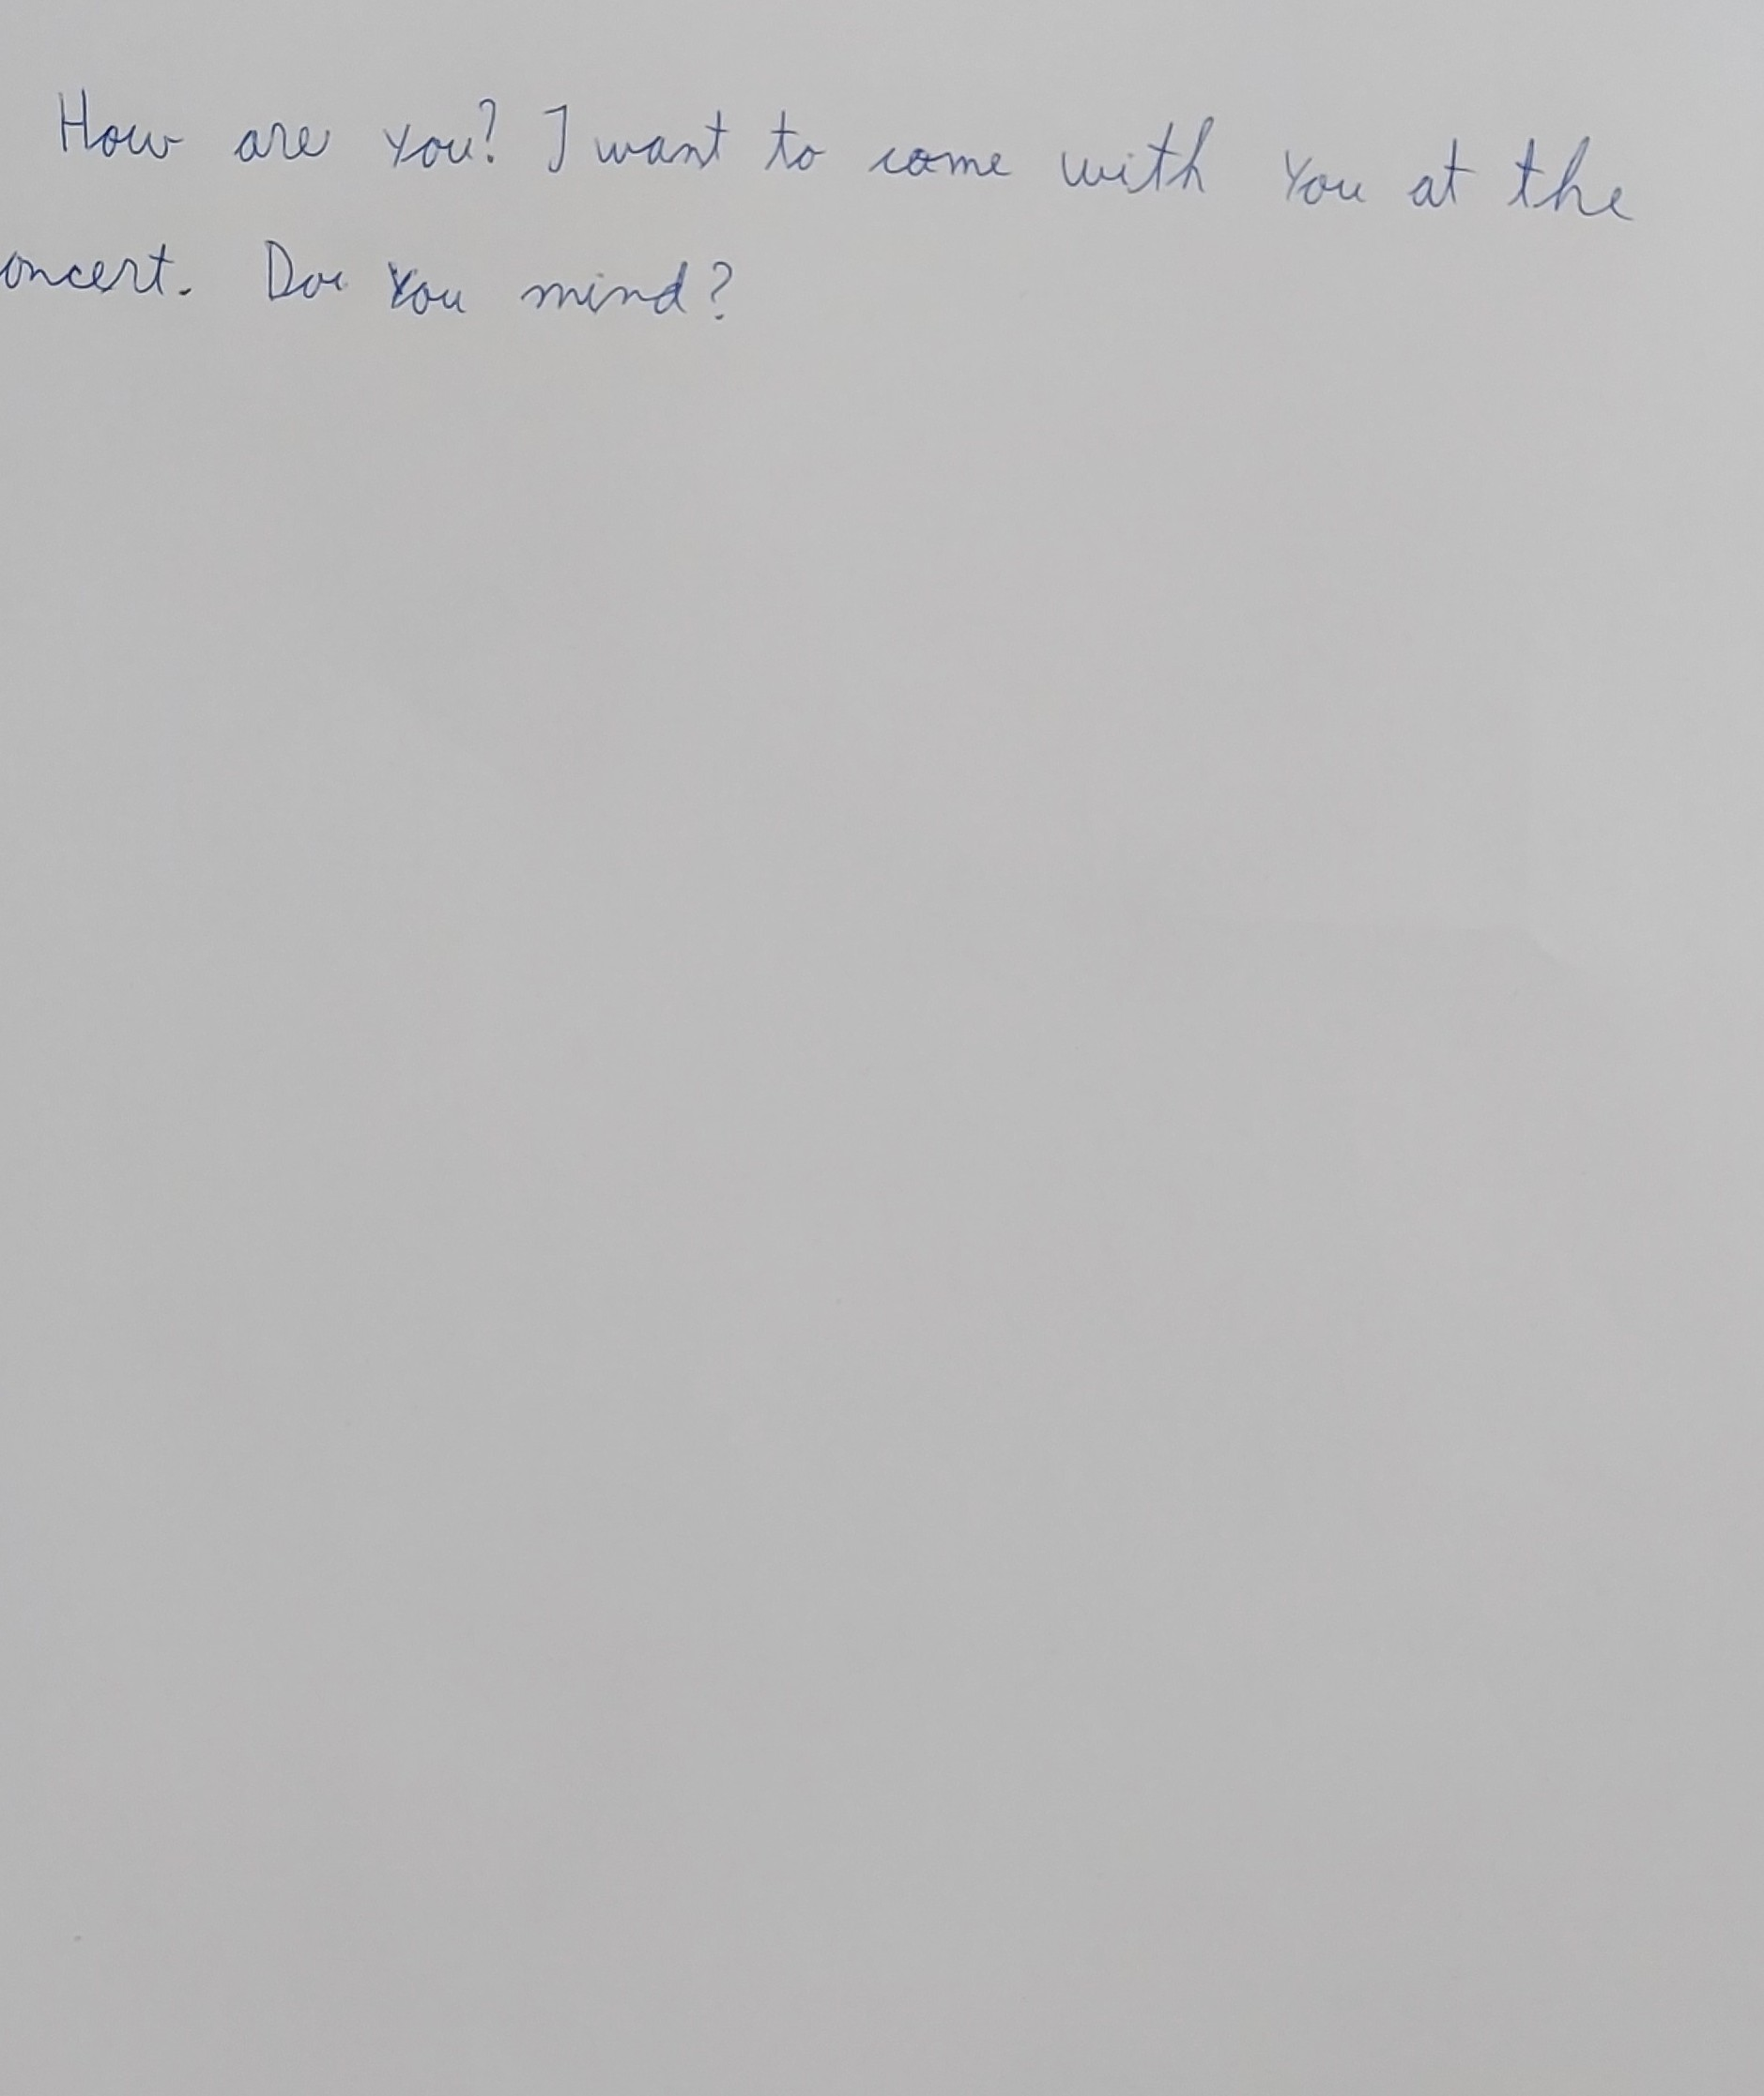 How are you? I want to come with you at the
oncert. Do you mind?